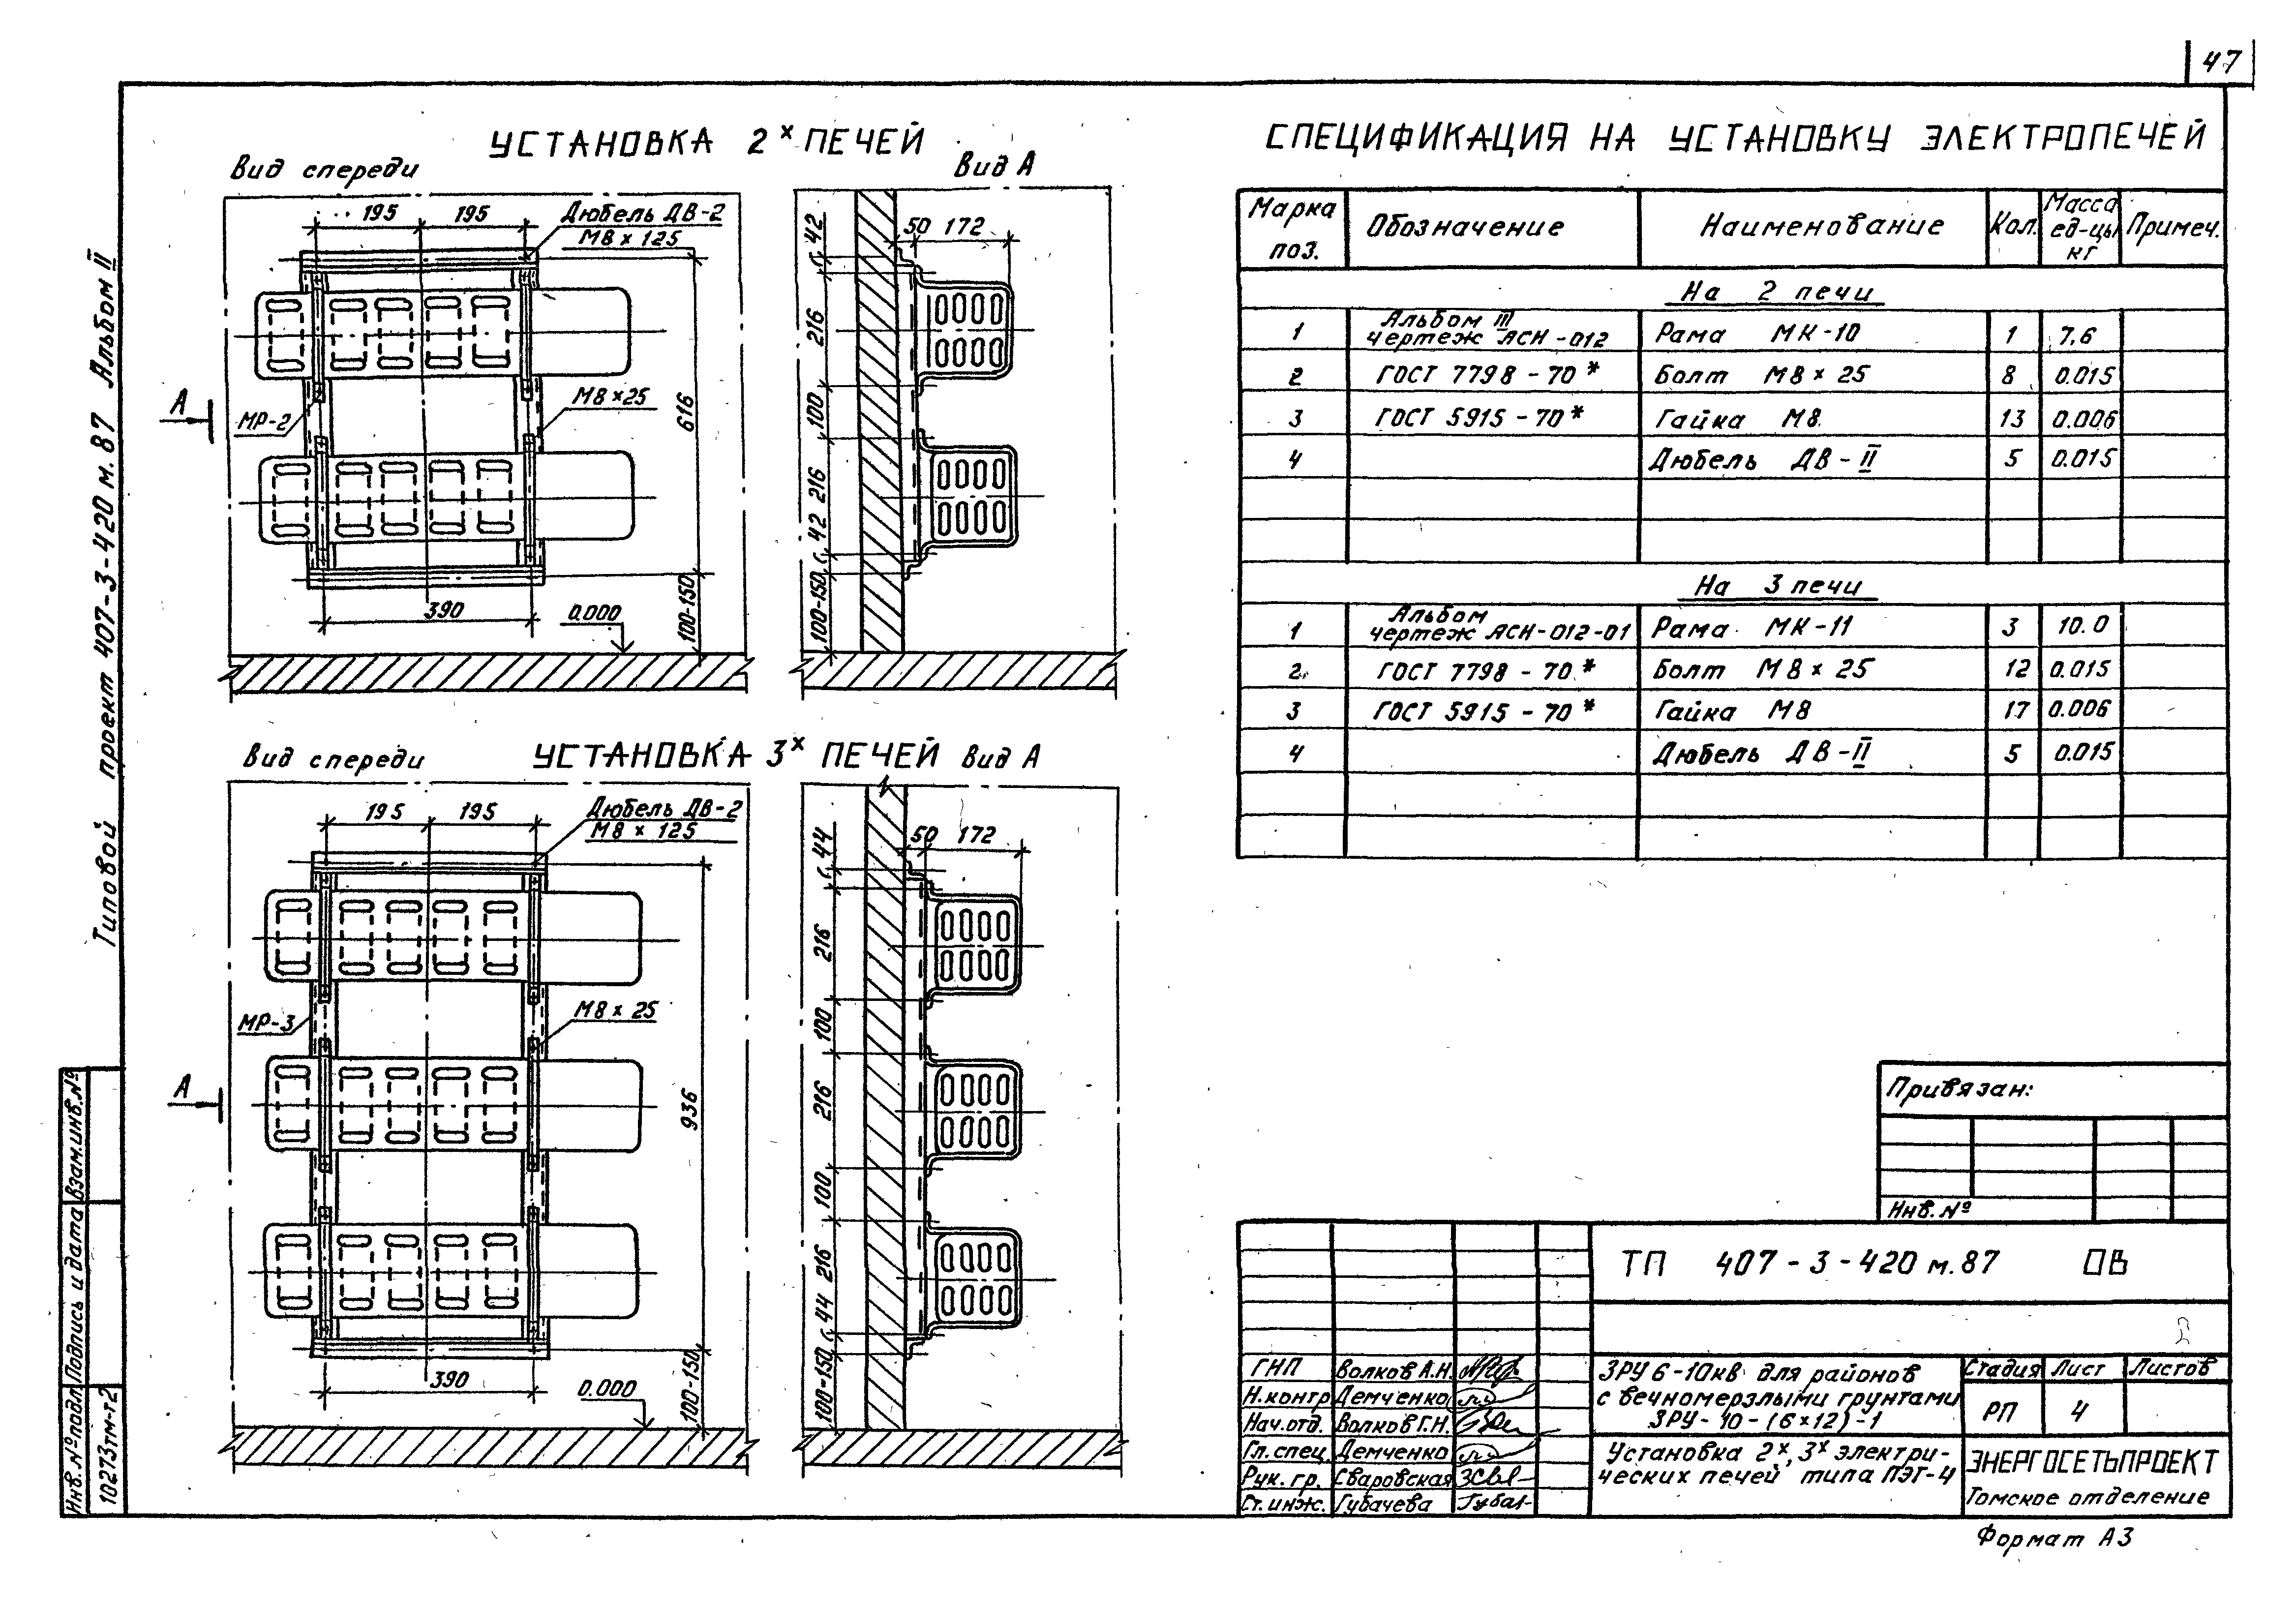 47
Типовой проект 407-3-420 м.87 Альбом II
УСТАНОВКА 2х ПЕЧЕЙ
Вид спереди
Вид А
195
195
Дюбель ДВ-2
М8 х 125
МР-2
М8 х 25
А
616
390
0.000
100-150
50
172
42
216
100
216
42
100-150
УСТАНОВКА 3х ПЕЧЕЙ
Вид спереди
Вид А
195
195
Дюбель ДВ-2
М8 х 125
МР-3
М8 х 25
А
936
390
0.000
100-150
50
172
44
216
100
216
100
216
44
100-150
СПЕЦИФИКАЦИЯ НА УСТАНОВКУ ЭЛЕКТРОПЕЧЕЙ
Марка поз. Обозначение Наименование Кол. Масса ед-цы кг Примеч.
На 2 печи
1 Альбом III чертеж АСН-012 Рама МК-10 1 7,6
2 ГОСТ 7798-70* Болт М8 х 25 8 0.015
3 ГОСТ 5915-70* Гайка М8 13 0.006
4 Дюбель ДВ-II 5 0.015
На 3 печи
1 Альбом чертеж АСН-012-01 Рама МК-11 3 10.0
2 ГОСТ 7798-70* Болт М8 х 25 12 0.015
3 ГОСТ 5915-70* Гайка М8 17 0.006
4 Дюбель ДВ-II 5 0.015
Привязан:
Инв.№
ТП 407-3-420 м.87 ОВ
ГНП Волков А.Н.
Н.контр Демченко
Нач.отд. Волков Г.Н.
Гл.спец. Демченко
Рук. гр. Сваровская
Ст.инж. Губачева
ЗРУ 6-10кв для районов
с вечномерзлыми грунтами
ЗРУ-10-(6х12)-1
Стадия Лист Листов
РП 4
Установка 2х, 3х электри-
ческих печей типа ПЭТ-4
ЭНЕРГОСЕТЬПРОЕКТ
Томское отделение
Формат А3
Взам.инв.№
Подпись и дата
Инв.№ подл.
10273тм-т2